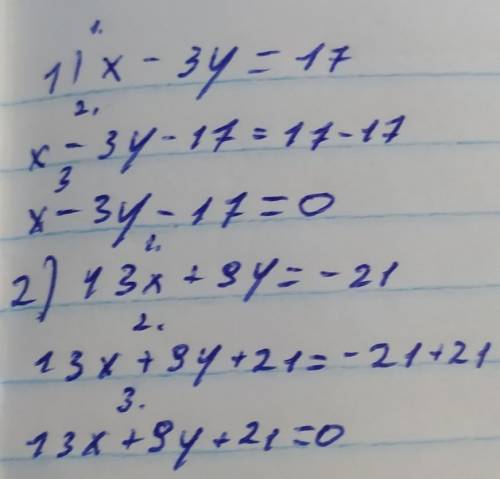 1.
1) x - 3y = 17
2.
x - 3y - 17 = 17 - 17
3
x - 3y - 17 = 0
1.
2) 13x + 9y = -21
2.
13x + 9y + 21 = -21 + 21
3.
13x + 9y + 21 = 0